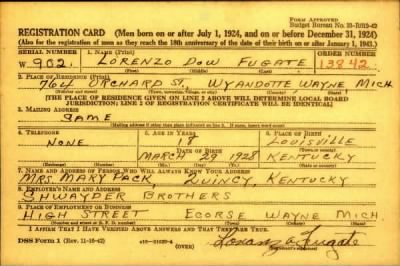 FORM APPROVED
Budget Bureau No. 33-R113-42
REGISTRATION CARD (Men born on or after July 1, 1924, and on or before December 31, 1924)
(Also for the registration of men as they reach the 18th anniversary of the date of their birth on or after January 1, 1943.)
SERIAL NUMBER 1. NAME (Print) ORDER NUMBER
W 902. LORENZO DOW FUGATE 13842
2. PLACE OF RESIDENCE (Print)
ORCHARD ST, WYANDOTTE WAYNE MICH
[THE PLACE OF RESIDENCE GIVEN ON LINE 2 ABOVE WILL DETERMINE LOCAL BOARD
JURISDICTION; LINE 2 OF REGISTRATION CERTIFICATE WILL BE IDENTICAL]
3. MAILING ADDRESS
SAME
[Mailing address if other than place indicated on line 2. If same, insert word same]
4. TELEPHONE 5. AGE IN YEARS 6. PLACE OF BIRTH
NONE LOUISVILLE
DATE OF BIRTH
MARCH 29 KENTUCKY
(Exchange) (Number) (Mo.) (Day) (Yr.) (State or country)
7. NAME AND ADDRESS OF PERSON WHO WILL ALWAYS KNOW YOUR ADDRESS
MRS MARY PACK QUINCY, KENTUCKY
8. EMPLOYER'S NAME AND ADDRESS
SHWAYDER BROTHERS
9. PLACE OF EMPLOYMENT OR BUSINESS
HIGH STREET ECORSE WAYNE MICH
I AFFIRM THAT I HAVE VERIFIED ABOVE ANSWERS AND THAT THEY ARE TRUE.
DSS Form 1 (Rev. 11-16-42) (OVER) Fugate